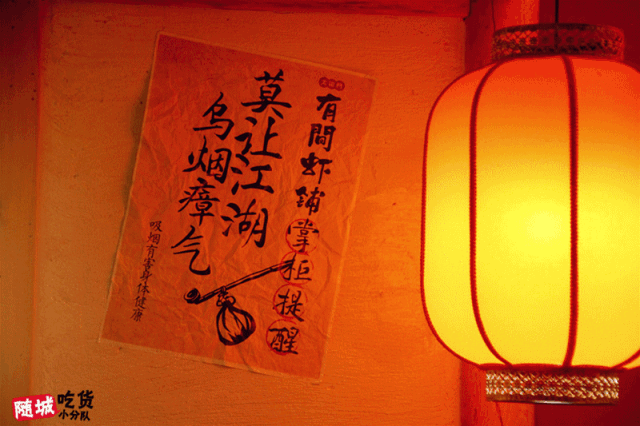 有間虾铺掌柜提醒
莫让江湖
乌烟瘴气
吸烟有害身体健康
随城吃货
小分队